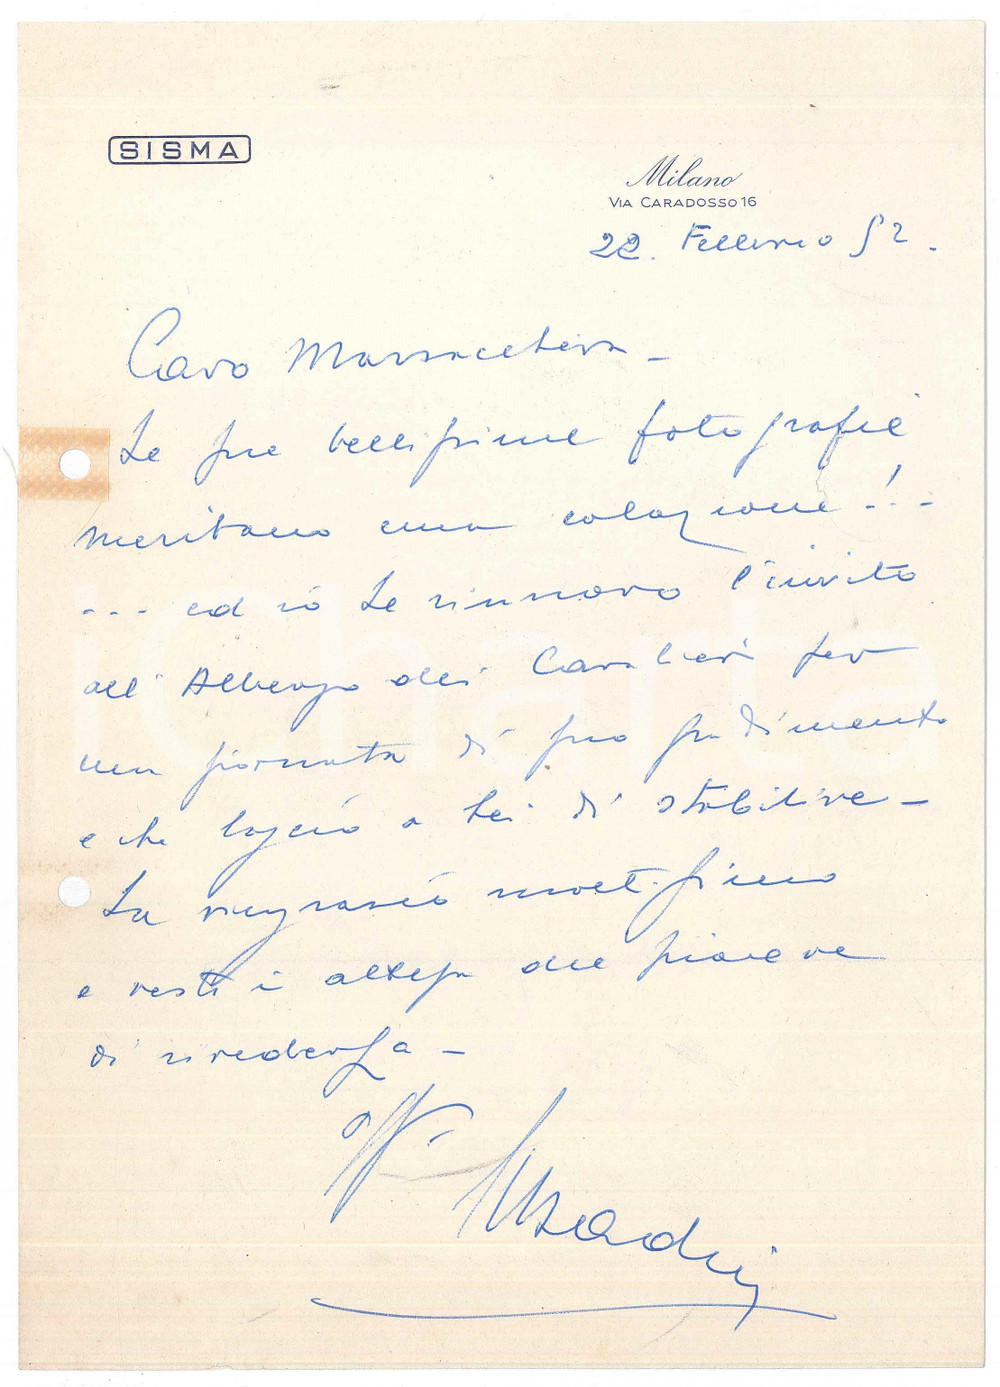 SISMA
Milano
VIA CARADOSSO 16
22. Febbraio 52.
Caro
Le sue bellissime fotografie
meritano una colazione!..-
--- ed io Le rinnovo l'invito
all'Albergo dei Cavalieri per
una giornata di suo gradimento
e che lascio a Lei di stabilire -
La ringrazio moltissimo
e resto in attesa del piacere
di rivederla -
iCharta